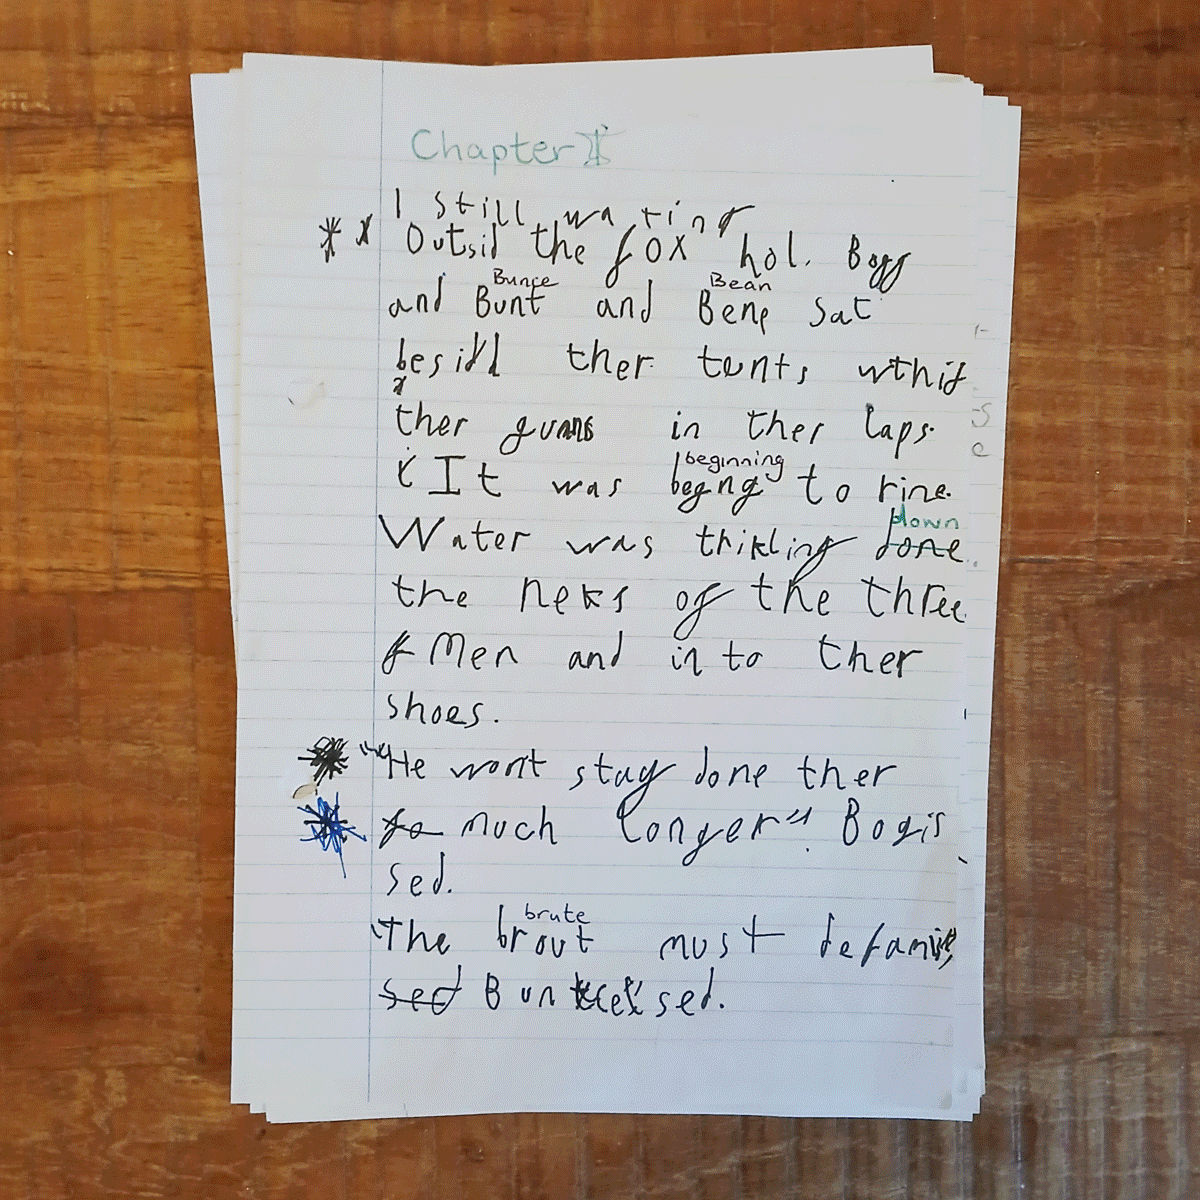 Chapter
1 still wating
Outsid the fox hol. Bogg
Bunce Bean
and Bunt and Bene sat
besidd ther tents wthif
ther gunns in ther laps.
beginning
It was begng to rine.
down
Water was thikling done
the neks of the three
Men and in to ther
shoes.
"He wont stay done ther
so much longer" Bogis
sed.
brute
"The brout must be
sed Bun sed.